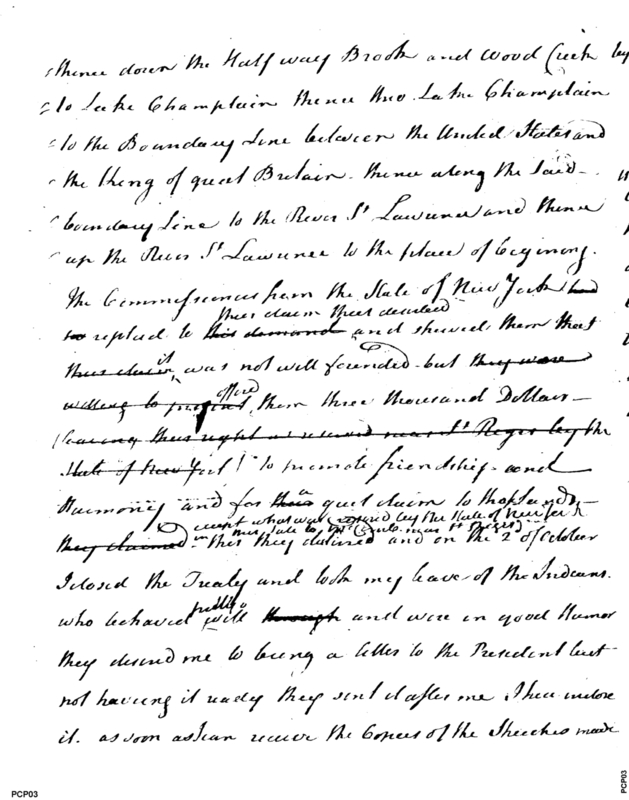 thence down the Half way Brook and Wood Creek
to Lake Champlain thence thro Lake Champlain
to the Boundary Line between the United States and
the King of great Britain - thence along the said -
boundary Line to the River St Lawrence and thence
up the River St Lawrence to the place of begining.
The Commissioners from the State of New York had
their claim their
replied to this demand and shewed them that
it
their claim was not will founded - but they were
offered
willing to them three thousand Dollars -
leaving their right as reserved near St Regis by the
State of New York to promote friendship - and
a
Harmony and for their quit claim to those Lands -
except what was reserved by the State of New York
in their Sale to near St Regis
they claimed - this they declined and on the 2d of October
I closed the Treaty and took my leave of the Indians.
pretty
who behaved will though and were in good Humor
they desired me to bring a letter to the President but -
not having it ready they sent it after me I here inclose
it. as soon as I can receive the Copies of the Speeches made
PCP03
PCP03